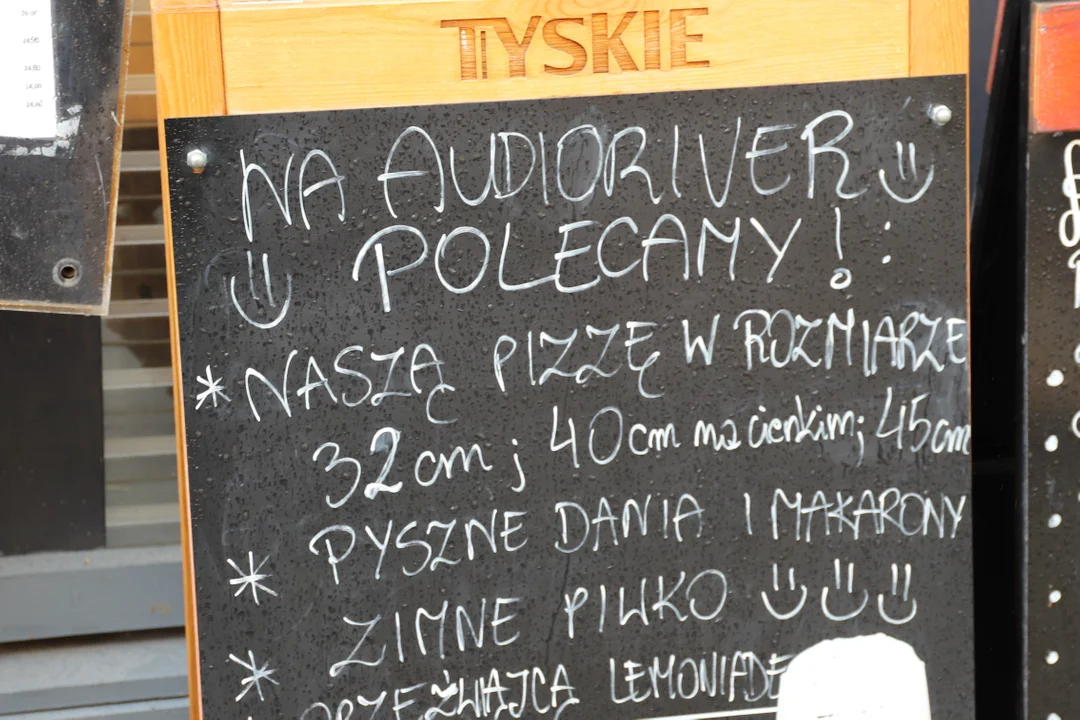 TYSKIE
NA AUDIORIVER
POLECAMY! :
* NASZĄ PIZZĘ W ROZMIARZE
32cm; 40cm na cienkim; 45cm
* PYSZNE DANIA I MAKARONY
* ZIMNE PIWKO
ORZEŹWIAJCĄ LEMONIADĘ